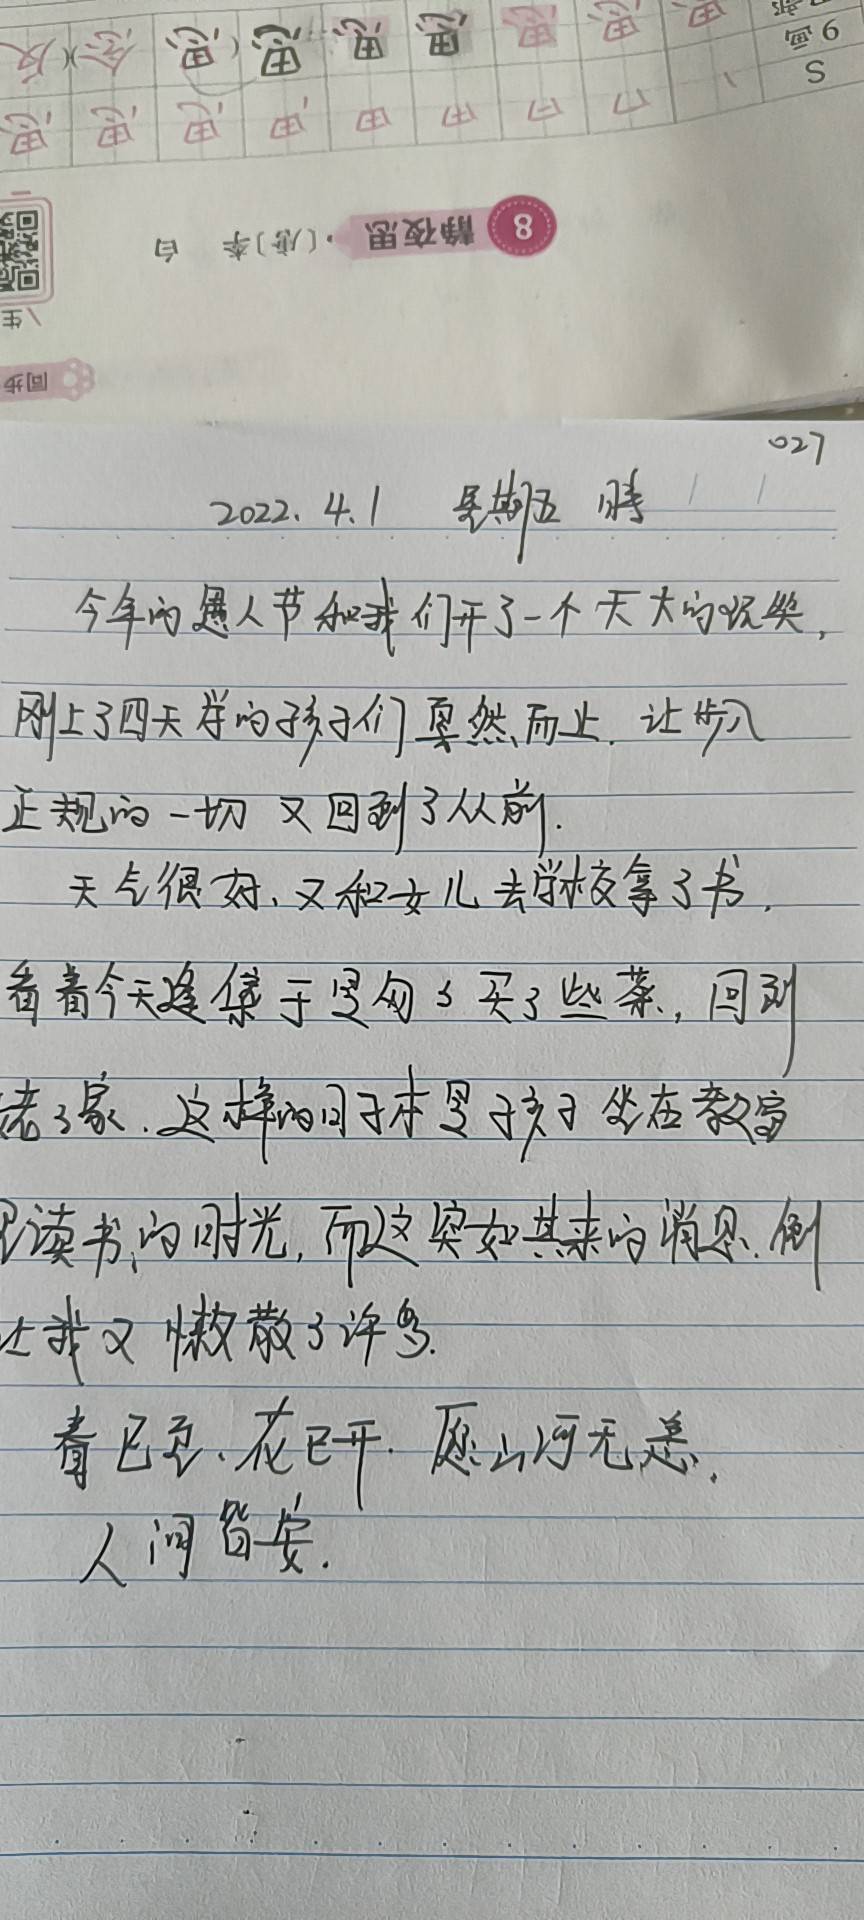 思 思 思 思 思 思
9画
S
8 静夜思 ·〔唐〕李 白
同步
027
2022.4.1 星期五 晴
今年的愚人节和我们开了一个天大的玩笑,
刚上了四天学的孩子们戛然而止.让步入
正规的一切又回到了从前.
天气很好、又和女儿去学校拿了书,
看着今天逢集于是匆匆买了些菜,回到
老家.这样的日子本是孩子坐在教室
里读书的时光,而这突如其来的消息.倒
让我又懒散了许多.
春已至、花已开.愿山河无恙,
人间皆安.